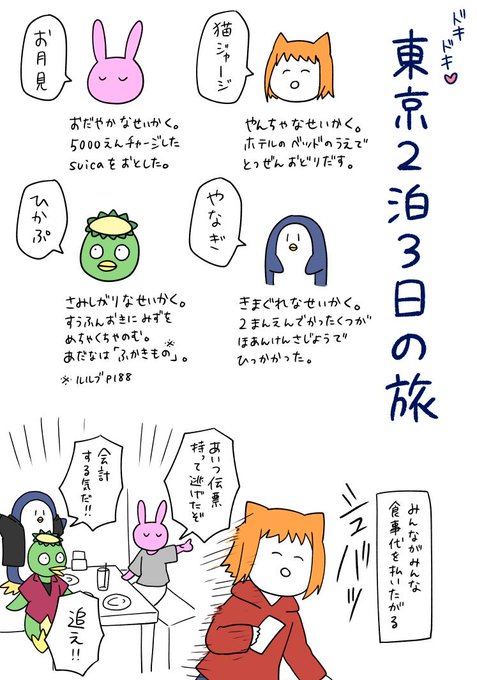 ドキドキ
東京2泊3日の旅
猫ジャージ
やんちゃなせいかく。
ホテルのベッドのうえで
とつぜんおどりだす。
お月見
おだやかなせいかく。
5000えんチャージした
suicaをおとした。
やなぎ
きまぐれなせいかく。
2まんえんでかったくつが
ほあんけんさじょうで
ひっかかった。
ひかぷ
さみしがりなせいかく。
すうふんおきにみずを
めちゃくちゃのむ。
あだなは「ふかきもの」。※
※ルルブP188
みんながみんな
食事代を払いたがる
シュバッ
あいつ伝票
持って逃げたぞ
会計
する気だ!!
追え!!